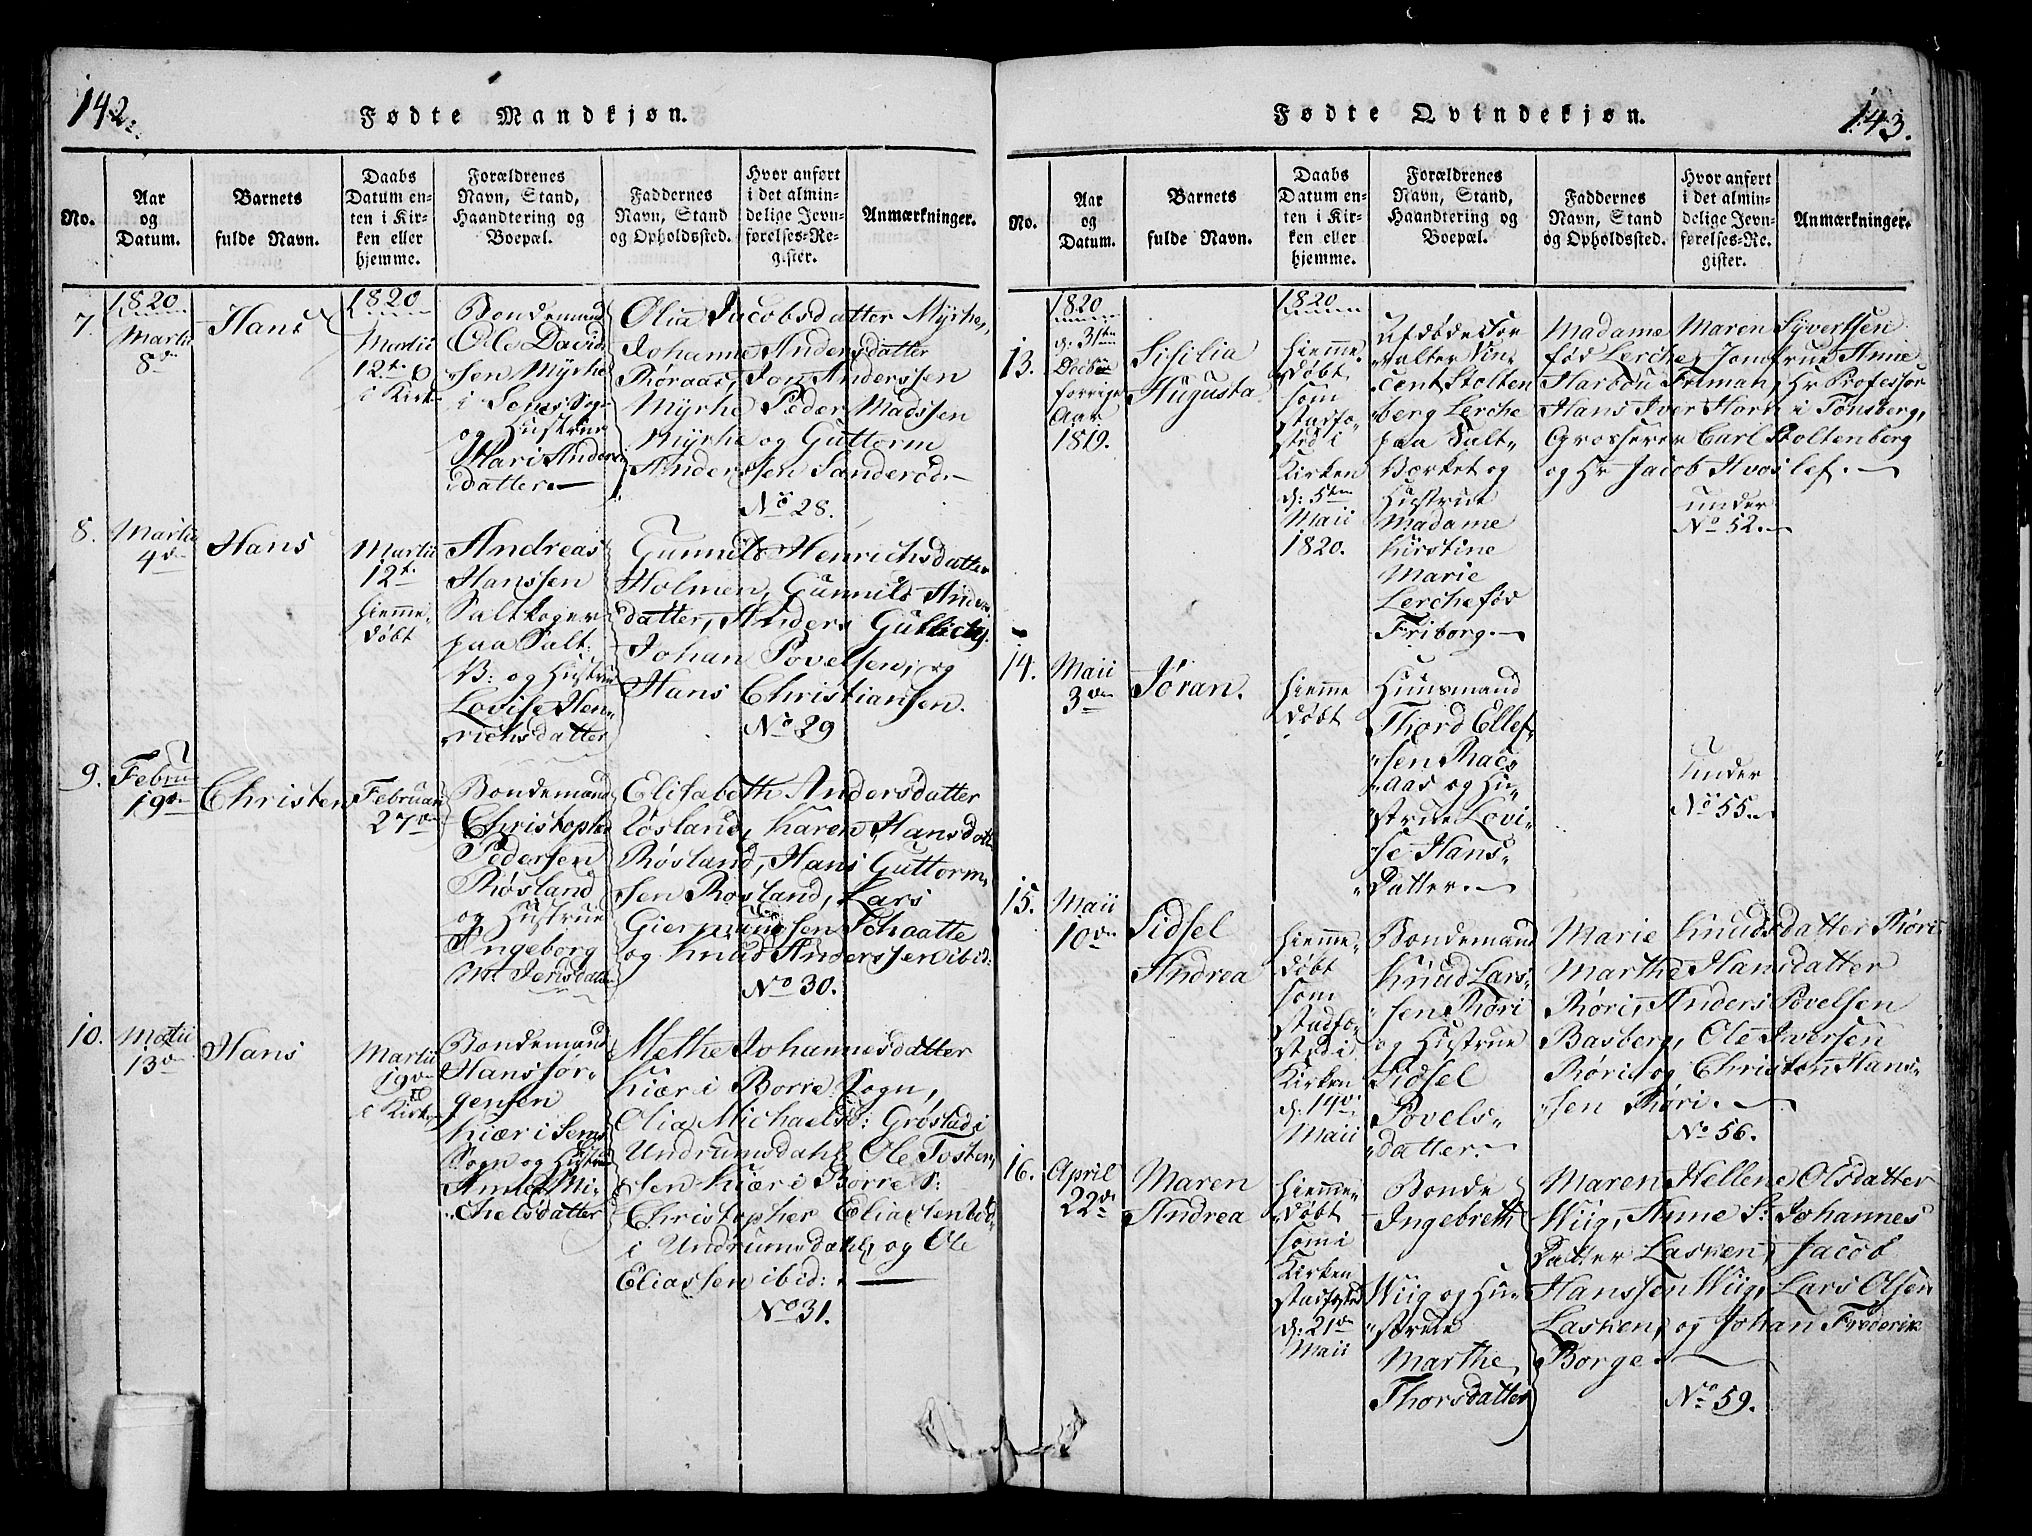 142.
Fødte Mandkjøn.
No.
Aar
og
Datum.
Barnets
fulde Navn.
Daabs
Datum en-
ten i Kir-
ken eller
hjemme.
Forældrenes
Navn, Stand,
Haandtering og
Boepæl.
Faddernes
Navn, Stand
og Opholdssted.
Hvor anført
i det almin-
delige Jevn-
førelses-Re-
gister.
Anmærkninger.
7.
1820
Martii
8de
Hans
1820
Martii
12te
i Kirk
Bondemand
Ole David
sen Myrhe
i Sems Sog-
og Hustrue
Mari Anders
datter
Olia Jacobsdatter Myrhe,
Johanne Andersdatter
Røraas, Jon Anderssen
Myrhe Peder Madssen
Myrhe og Guttorm
Anderssen Sanderød.
No 28.
8.
Martii
4de
Hans
Martii
12te
hiemme
døbt
Andreas
Hanssen
Saltkoger
paa Salt:
V: og Hustrue
Lovise Hen-
richsdatter
Gunnild Henrichsdatter
Holmen, Gunnild Anders
datter, Anders Gullichs.
Johan Povelsen, og
Hans Christiansen.
No 29
9.
Febru
19de
Christen
Februari
27de
Bondemand
Christopher
Pedersen
Røsland
og Hustrue
Ingeborg
Jensdatter
Elisabeth Andersdatter
Røsland, Karen Hansdatt
Røsland, Hans Guttorm
sen Røsland, Lars
Giermundsen Schaatte
og Knud Anderssen ibid:
No 30.
10.
Martii
13de
Hans
Martii
19de
i Kirk
Bondemand
Hans Jør-
gensen
Kiær i Sems
Sogn og Hustrue
Anne Mi-
chelsdatter
Methe Johannesdatter
Kiær i Borre Sogn,
Olia Michaelsd: Grøstad i
Undrumsdahl, Ole Tosten
sen Kiær i Borre S:
Christopher Eliassen ibid
i Undrumsdahl, og Ole
Eliassen ibid:
No 31.
143.
Fødte Qvindekjøn.
No.
Aar
og
Datum.
Barnets
fulde Navn.
Daabs
Datum en-
ten i Kir-
ken eller
hjemme.
Forældrenes
Navn, Stand,
Haandtering og
Boepæl.
Faddernes
Navn, Stand
og Opholdssted.
Hvor anført
i det almin-
delige Jevn-
førelses-Re-
gister.
Anmærkninger.
13.
1820
d: 31ten
Decbr
forrige
Aar
1819.
Sisilia
Augusta
1820
hiemme
døbt
som
stadfæ-
sted i
Kirken
d: 5ten
Maii
1820.
Afdøde For
valter Vin
cent Stolten
berg Lerche
paa Salt-
Værket og
Hustrue
Madame
Kirstine
Marie
Lerche fød
Friborg.
Madame Maren Syvertsen
fød Lerche, Jomfrue Anne
Harboe Friman, Hr Professor
Hans Iver Horn i Tønsberg,
Grosserer Carl Stoltenberg
og Hr Jacob Hvoslef.
under
No 52.
14.
Maii
3de
Jøran.
hiemme
døbt
Huusmand
Thord Ellef-
sen Raas
aas og Hu-
strue Lovi-
se Hans-
Datter.
under
No 55.
15.
Maii
10de
Sidsel
Andrea
hiemme-
døbt
som
stadfæ-
sted i
Kirken
d: 19de
Maii
Bondemand
Knud Lars-
sen Røri
og Hustrue
Sidsel
Povels-
datter.
Marie Knudsdatter Røri
Marthe Hansdatter
Røri, Anders Povelsen
Basberg, Ole Iversen
Røri og Christen Hans-
sen Røri.
No 56.
16.
April
22de
Maren
Andrea
hiemme-
døbt
som i
Kirken
stadfæsted
d: 21de
Maii
Bonde
Ingebreth
Wiig og Hu-
strue
Marthe
Thorsdatter
Maren Hellene Olsdatter
Wiig, Anne S: Johannes
Datter Lasken, Jacob
Hanssen Wiig, Lars Olsen
Lasken, og Johan Frederik
Borge.
No 59.